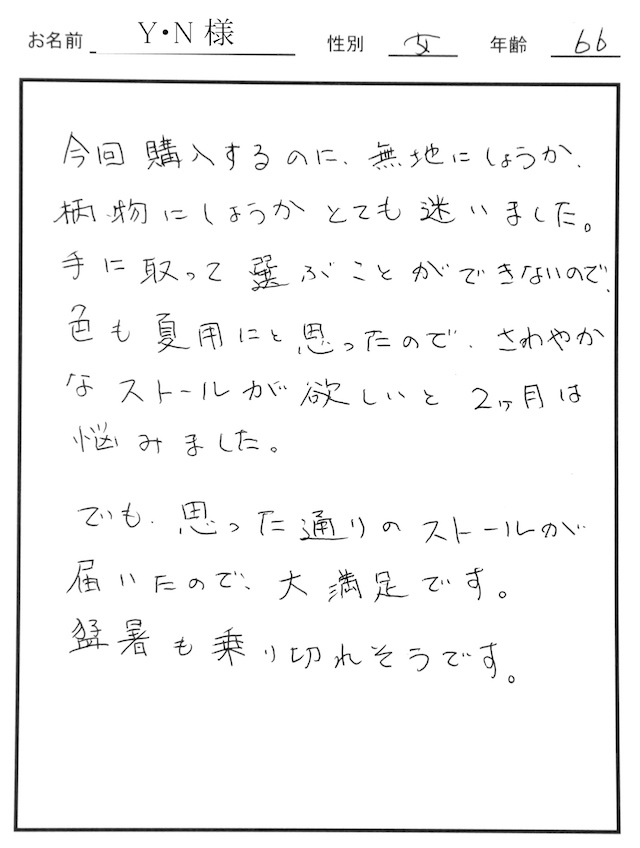 お名前 Y・N 様 性別 女 年齢 66
今回購入するのに、無地にしょうか、
柄物にしょうかとても迷いました。
手に取って選ぶことができないので、
色も夏用にと思ったので、さわやか
なストールが欲しいと2ヶ月は
悩みました。
でも、思った通りのストールが
届いたので、大満足です。
猛暑も乗り切れそうです。